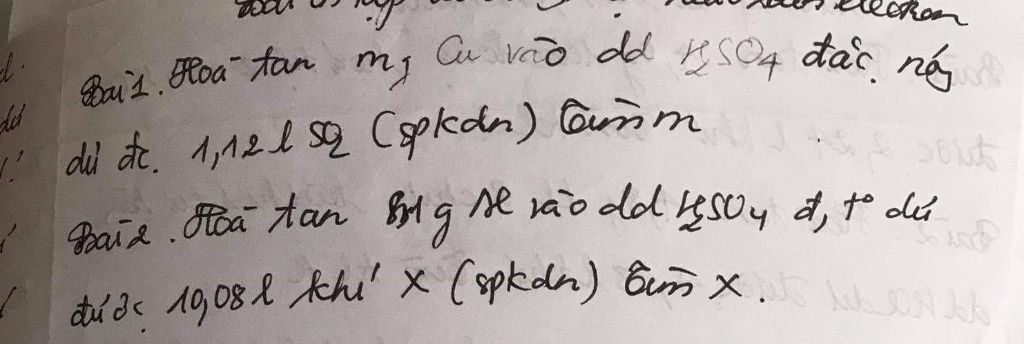 electron
Bài 1. Hoà tan m g Cu vào dd H2SO4 đặc nóng
dư đc. 1,12 l SO2 (spkdn) tìm m
Bài 2. Hoà tan g Al vào dd H2SO4 đ, t° dư
được 10,08 l khí X (spkdn) tìm X.